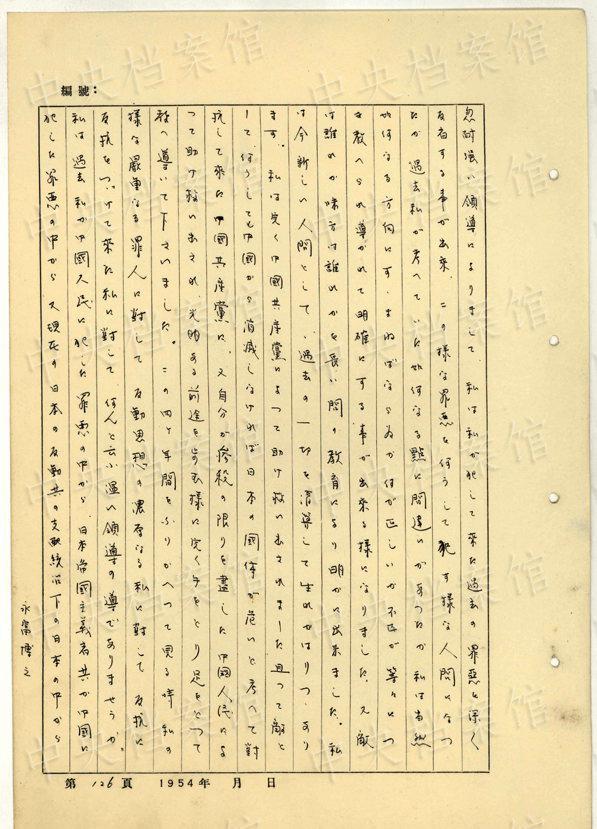 編號：
忍耐强い領導によりまして、私は私が犯して来た過去の罪悪を深く
反省する事が出来、この様な罪悪を何うして犯す様な人間になつ
たか過去私が考へていた如何なる點に間違いがあつたか私は当然
如何なる方向にすゝまねばならぬか何が正しいか不正か等々につ
き教へられ導かれて明確にする事が出来る様になりました。又敵
は誰れか味方は誰れかを長い間の教育により明かに出来ました。私
は今新しい人間として、過去の一切を清算して生れかはりつゝあり
ます。私は完く中國共産黨によつて助け救い出されました且つて敵と
して、何うしても中國から消滅しなければ日本の國体が危いと考へて対
抗して来た中國共産黨に、又自分が惨殺の限りを盡した中國人民によ
つて助け救い出され、光明ある前途を歩む様に完く手をとり足をとつて
教へ導いて下さいました。この四ヶ年間をふりかへつて見る時 私の
様な嚴重なる罪人に対して 反動思想の濃厚なる私に対して 反抗に
反抗をつゞけて来た私に対して 何んと云ふ温い領導の導でありませうか。
私は過去私が中國人民に犯した罪悪の中から、日本帝國主義者共が中國に
犯した罪悪の中から 又現在の日本の反動共の支配統治下の日本の中から
永富博之
第 126 頁 1954年 月 日
中央档案馆